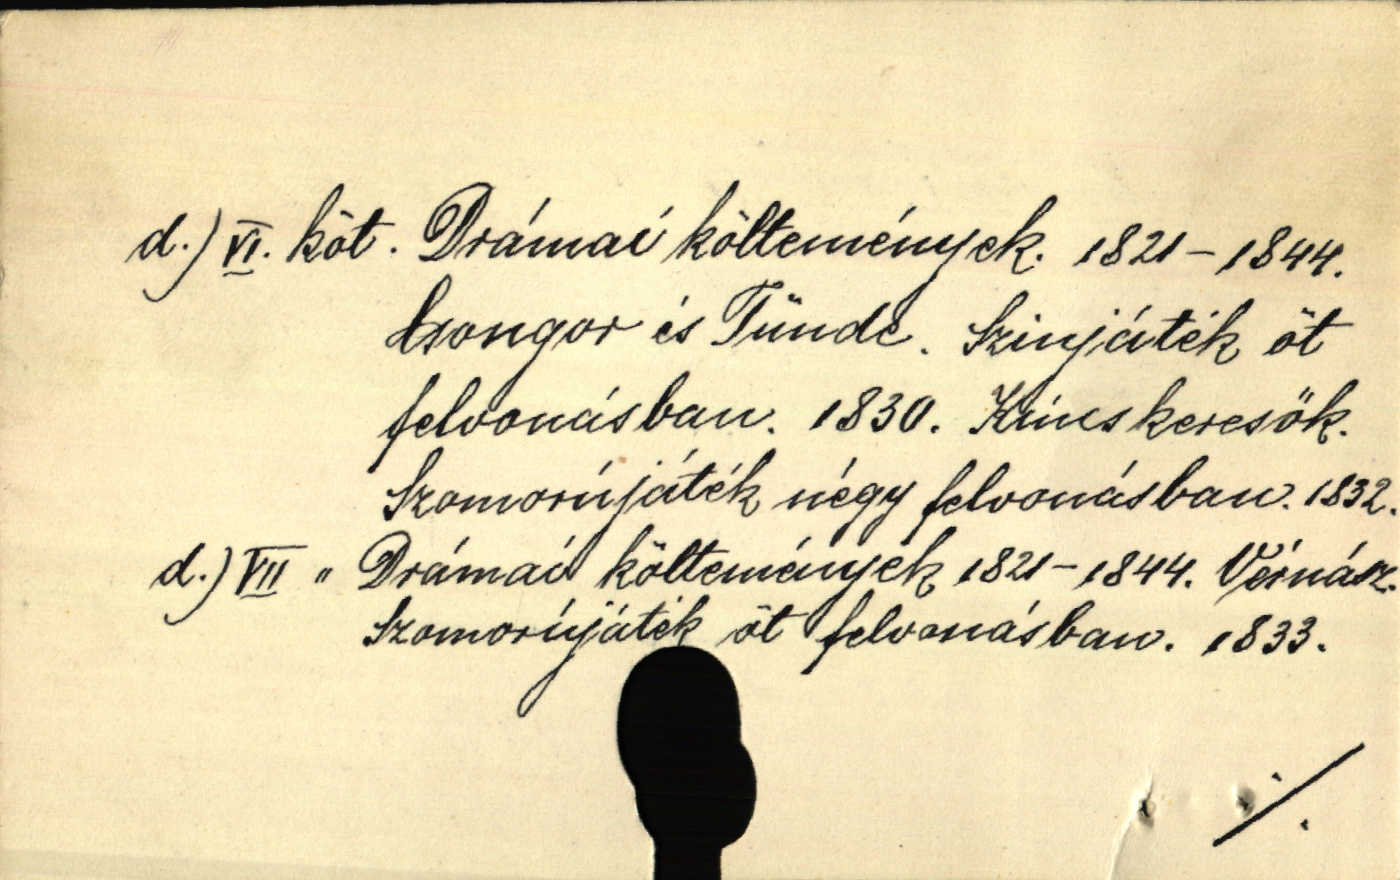 d.) VI. köt. Drámai költemények. 1821-1844.
Csongor és Tünde. Szinjáték öt
felvonásban. 1830. Kincskeresők.
Szomorújáték négy felvonásban. 1832.
d.) VII " Drámai költemények 1821-1844. Vérnász.
Szomorújáték öt felvonásban. 1833.
./.